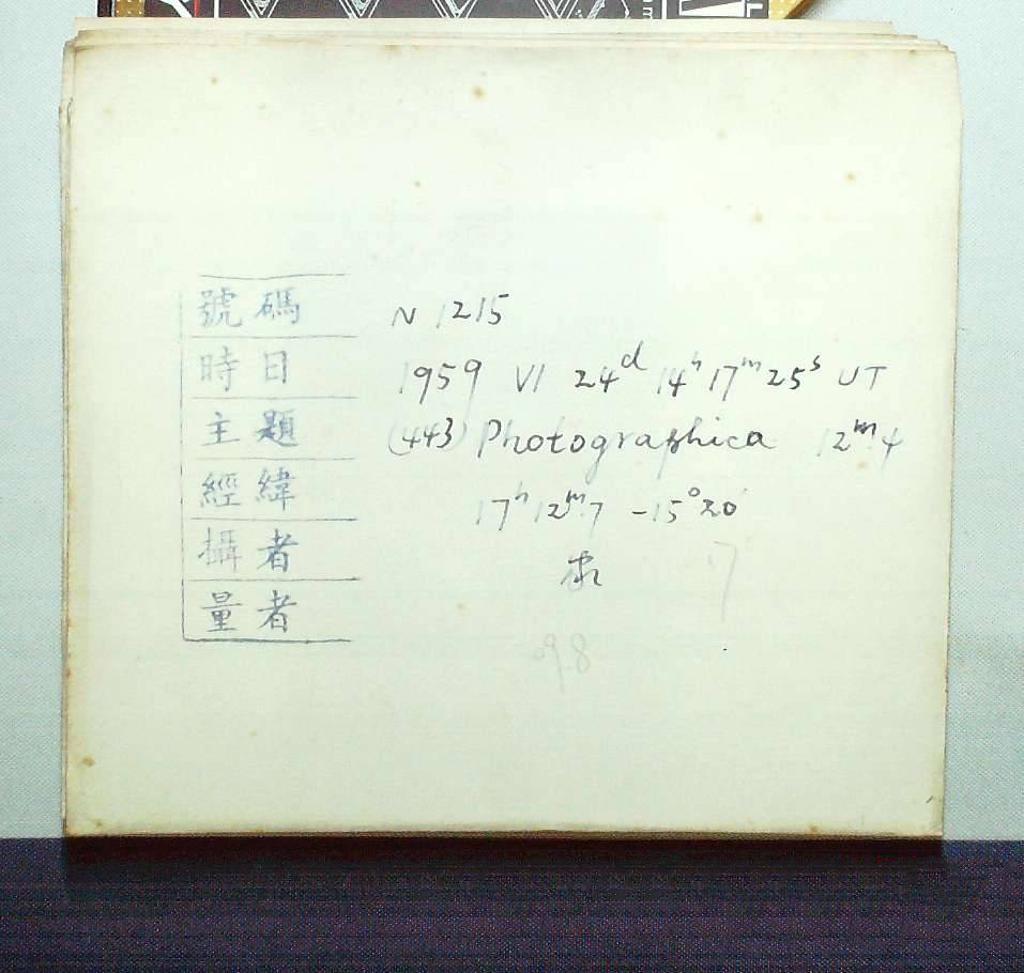 號碼 N 1215
時日 1959 VI 24ᵈ 14ʰ 17ᵐ 25ˢ UT
主題 (443) Photographica 12ᵐ.4
經緯 17ʰ 12ᵐ.7 -15°20'
攝者
量者